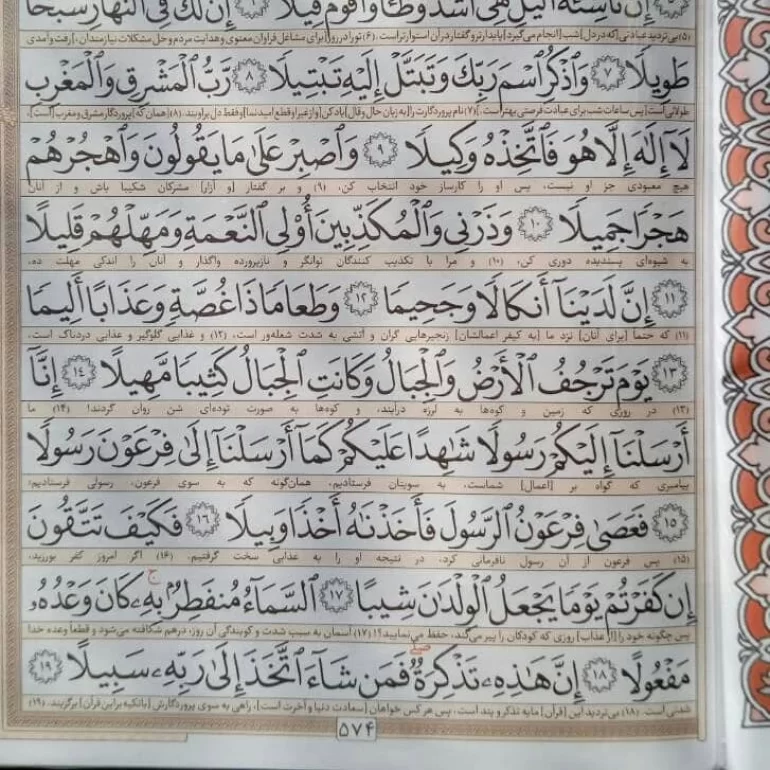 إِنَّ نَاشِئَةَ ٱلَّيۡلِ هِيَ أَشَدُّ وَطۡـٔٗا وَأَقۡوَمُ قِيلًا ۶ إِنَّ لَكَ فِي ٱلنَّهَارِ سَبۡحٗا
(۵) بی‌تردید عبادتی [که در دل] شب [انجام می‌گیرد] پایدارتر و گفتار در آن استوارتر است. (۶) تو را در روز [برای مشاغل فراوان معنوی و هدایت مردم و حل مشکلات نیازمندان،] رفت و آمدی
طَوِيلٗا ۷ وَٱذۡكُرِ ٱسۡمَ رَبِّكَ وَتَبَتَّلۡ إِلَيۡهِ تَبۡتِيلٗا ۸ رَّبُّ ٱلۡمَشۡرِقِ وَٱلۡمَغۡرِبِ
طولانی است [پس ساعات شب برای عبادت فرصتی بهتر است.] (۷) نام پروردگارت را [به زبان حال و قال] یاد کن [و از غیر او قطع امید نما] و فقط دل بر او بند. (۸) [همان که] پروردگار مشرق و مغرب [است]،
لَآ إِلَٰهَ إِلَّا هُوَ فَٱتَّخِذۡهُ وَكِيلٗا ۹ وَٱصۡبِرۡ عَلَىٰ مَا يَقُولُونَ وَٱهۡجُرۡهُمۡ
هیچ معبودی جز او نیست، پس او را کارساز خود انتخاب کن، (۹) و بر گفتار [و آزار] مشرکان شکیبا باش و از آنان
هَجۡرٗا جَمِيلٗا ۱۰ وَذَرۡنِي وَٱلۡمُكَذِّبِينَ أُوْلِي ٱلنَّعۡمَةِ وَمَهِّلۡهُمۡ قَلِيلًا
به شیوه‌ای پسندیده دوری کن، (۱۰) و مرا با تکذیب کنندگان توانگر و نازپرورده واگذار و آنان را اندکی مهلت ده،
۱۱ إِنَّ لَدَيۡنَآ أَنكَالٗا وَجَحِيمٗا ۱۲ وَطَعَامٗا ذَا غُصَّةٖ وَعَذَابًا أَلِيمٗا
(۱۱) که حتماً [برای آنان] نزد ما [به کیفر اعمالشان] زنجیرهایی گران و آتشی به شدت شعله‌ور است، (۱۲) و غذایی گلوگیر و عذابی دردناک است،
۱۳ يَوۡمَ تَرۡجُفُ ٱلۡأَرۡضُ وَٱلۡجِبَالُ وَكَانَتِ ٱلۡجِبَالُ كَثِيبٗا مَّهِيلًا ۱۴ إِنَّآ
(۱۳) در روزی که زمین و کوه‌ها به لرزه درآیند، و کوه‌ها به صورت توده‌ای شن روان گردند! (۱۴) ما
أَرۡسَلۡنَآ إِلَيۡكُمۡ رَسُولٗا شَٰهِدًا عَلَيۡكُمۡ كَمَآ أَرۡسَلۡنَآ إِلَىٰ فِرۡعَوۡنَ رَسُولٗا
پیامبری که گواه بر [اعمال] شماست، به سویتان فرستادیم، همان‌گونه که به سوی فرعون، رسولی فرستادیم؛
۱۵ فَعَصَىٰ فِرۡعَوۡنُ ٱلرَّسُولَ فَأَخَذۡنَٰهُ أَخۡذٗا وَبِيلٗا ۱۶ فَكَيۡفَ تَتَّقُونَ
(۱۵) پس فرعون از آن رسول نافرمانی کرد، در نتیجه او را به عذابی سخت گرفتیم. (۱۶) اگر امروز کفر بورزید،
إِن كَفَرۡتُمۡ يَوۡمٗا يَجۡعَلُ ٱلۡوِلۡدَٰنَ شِيبًا ۱۷ ٱلسَّمَآءُ مُنفَطِرُۢ بِهِۦۚ كَانَ وَعۡدُهُۥ
پس چگونه خود را [از عذاب] روزی که کودکان را پیر می‌کند، حفظ می‌نمایید؟! (۱۷) آسمان به سبب شدت و کوبندگی آن روز، درهم شکافته می‌شود و قطعاً وعده خدا
مَفۡعُولًا ۱۸ إِنَّ هَٰذِهِۦ تَذۡكِرَةٞۖ فَمَن شَآءَ ٱتَّخَذَ إِلَىٰ رَبِّهِۦ سَبِيلًا ۱۹
شدنی است. (۱۸) بی‌تردید این [قرآن] مایه تذکر و پند است، پس هر کس خواهان [سعادت دنیا و آخرت است]، راهی به سوی پروردگارش [با تکیه بر این قرآن] برگزیند. (۱۹)
۵۷۴